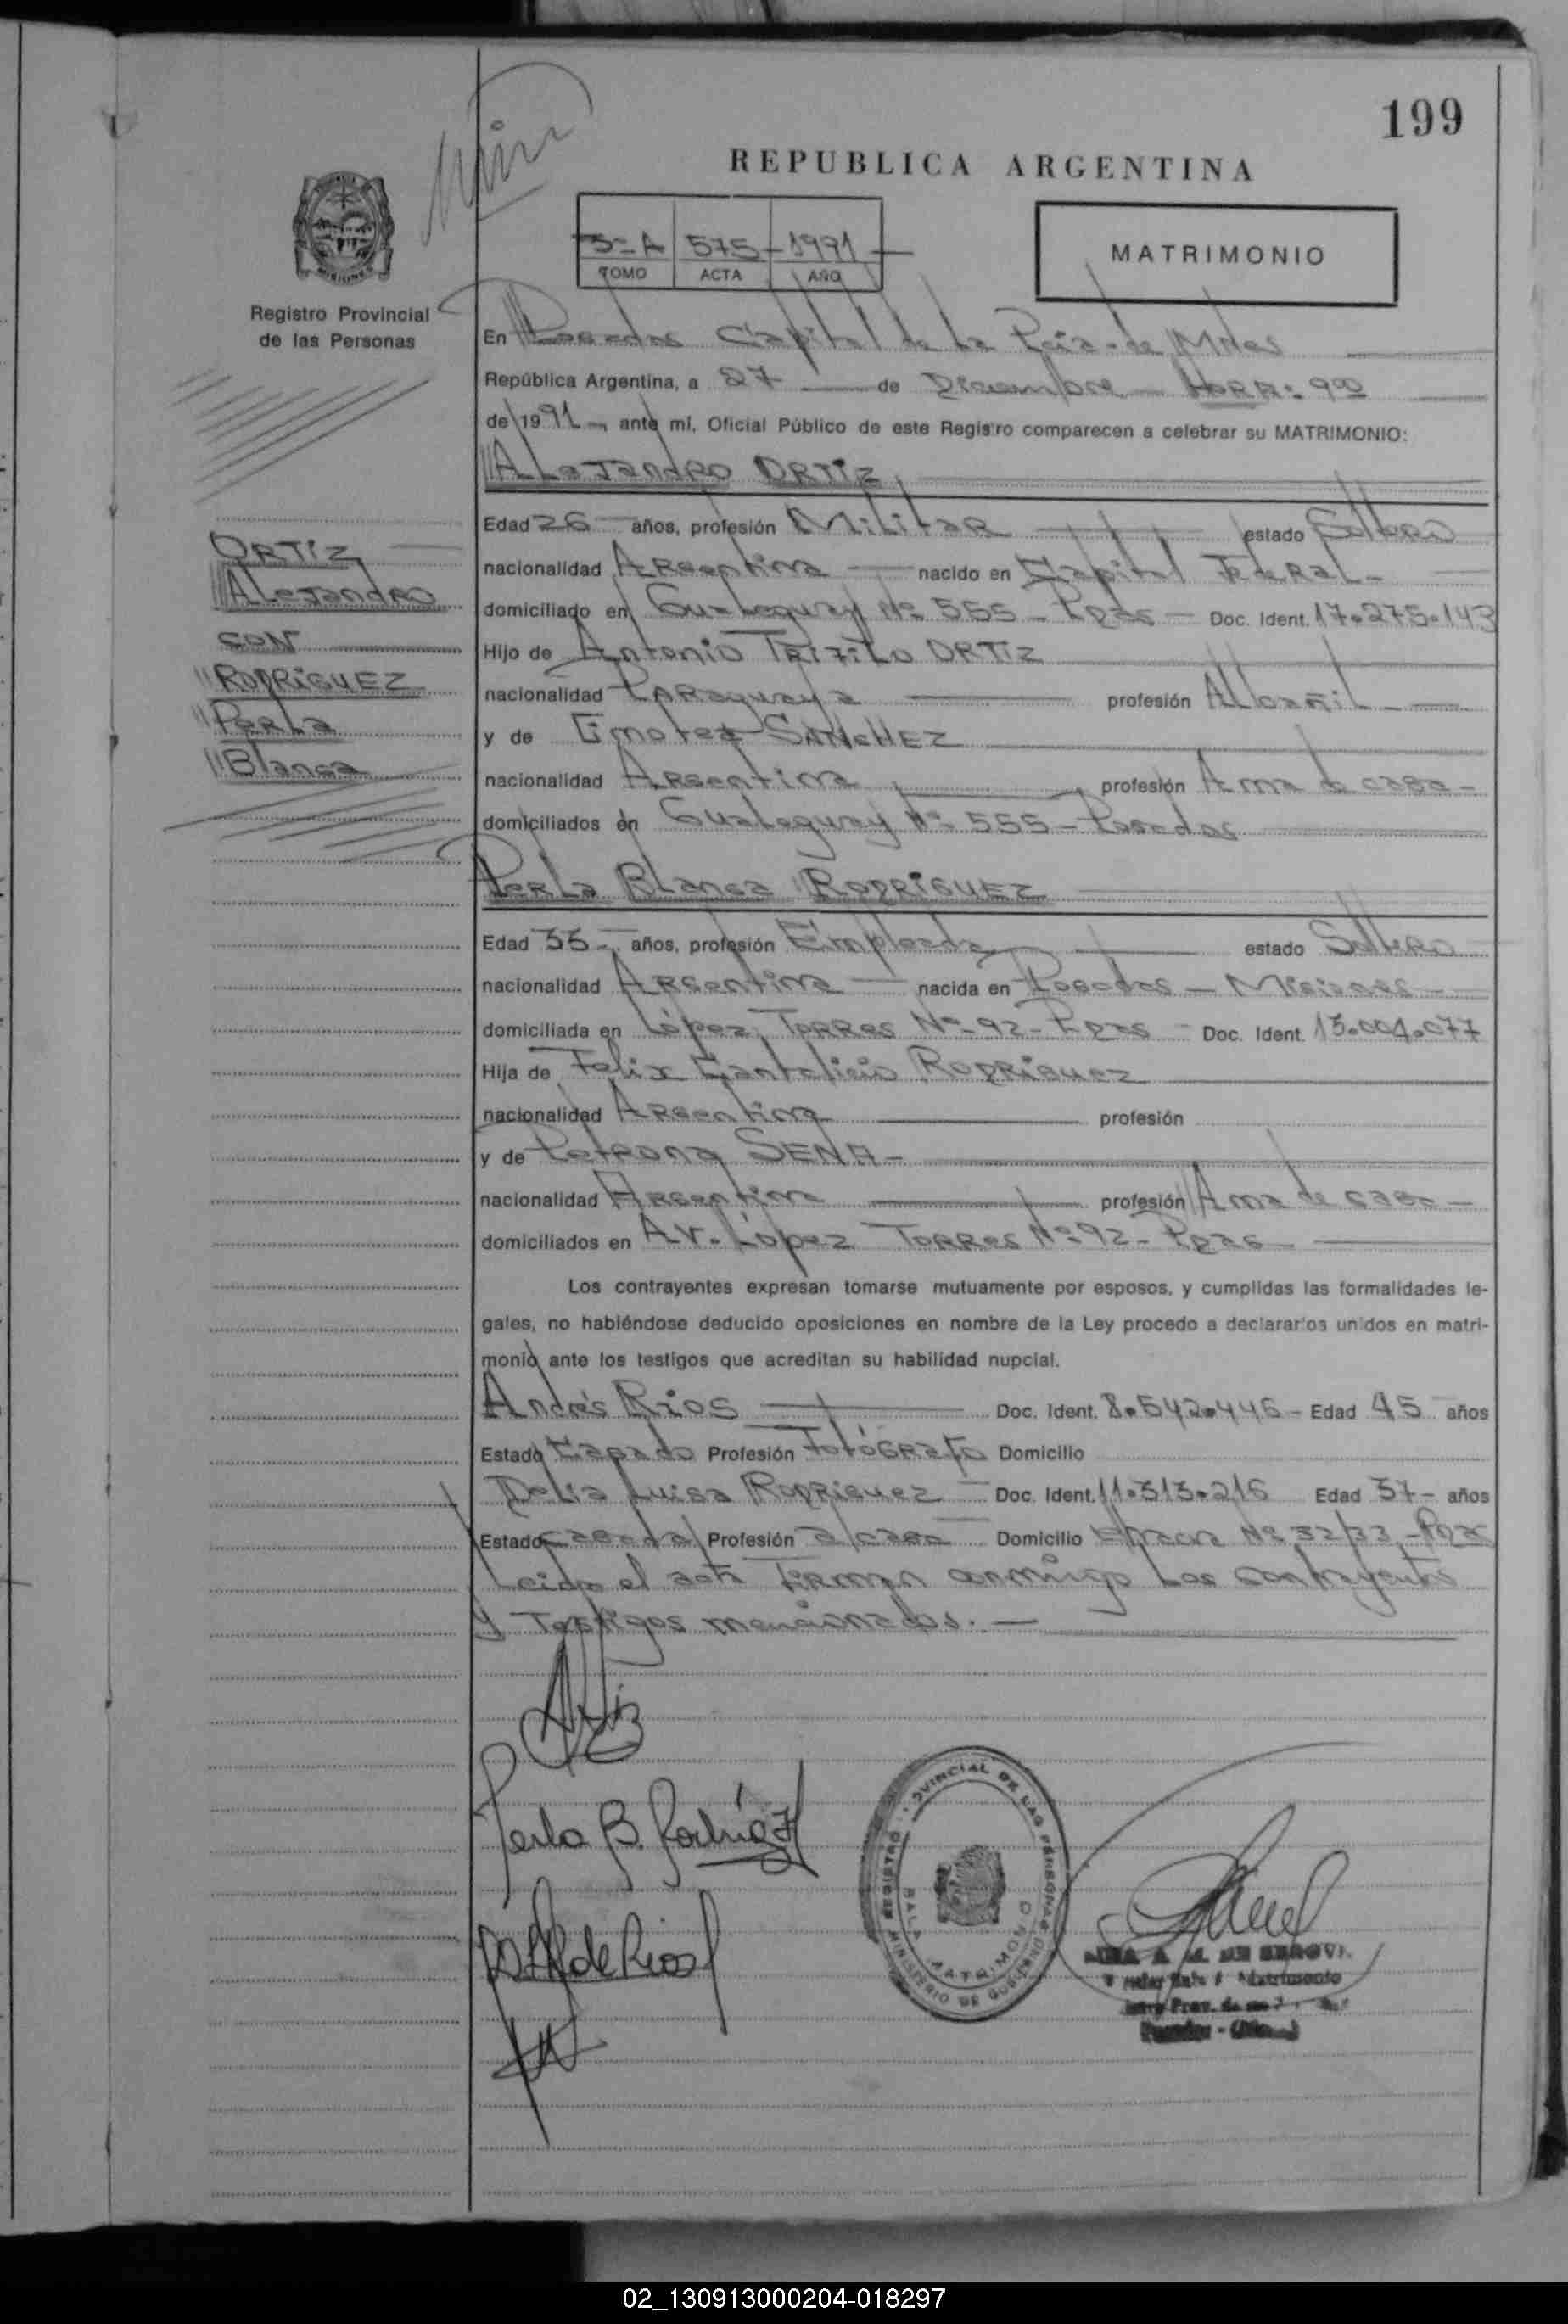 199
REPUBLICA ARGENTINA
3º A 575 - 1991
TOMO ACTA AÑO
MATRIMONIO
MISIONES
Registro Provincial
de las Personas
En Posadas Capital de La Pcia. de Mnes
República Argentina, a 27 de Diciembre - HORA: 9 00
de 1991 ante mí, Oficial Público de este Registro comparecen a celebrar su MATRIMONIO:
Alejandro ORTIZ
Edad 26 años, profesión Militar estado Soltero
nacionalidad Argentina nacido en Capital Federal -
domiciliado en Gualeguay Nº 555 - Pdas - Doc. Ident. 17.275.143
Hijo de Antonio ORTIZ
nacionalidad Paraguaya profesión Albañil -
y de Timotea SANCHEZ
nacionalidad Argentina profesión Ama de casa -
domiciliados en Gualeguay Nº 555 - Posadas
Perla Blanca RODRIGUEZ
Edad 35 - años, profesión Empleada estado Soltera
nacionalidad Argentina nacida en Posadas - Misiones -
domiciliada en López Torres Nº 92 - Pdas - Doc. Ident. 13.004.077
Hija de Felix Cantalicio Rodriguez
nacionalidad Argentina profesión
y de Petrona SENA -
nacionalidad Argentina profesión Ama de casa -
domiciliados en Av. López Torres Nº 92 - Pdas -
Los contrayentes expresan tomarse mutuamente por esposos, y cumplidas las formalidades le-
gales, no habiéndose deducido oposiciones en nombre de la Ley procedo a declararlos unidos en matri-
monio ante los testigos que acreditan su habilidad nupcial.
Andrés Rios Doc. Ident. 8.542.446 - Edad 45 años
Estado Casado Profesión Fotógrafo Domicilio
Delia Luisa Rodriguez Doc. Ident. 11.313.216 Edad 37 - años
Estado casada Profesión a/casa Domicilio Nº 32/33 - Pdas
Leida el acta Firman conmigo Los contrayentes
y Testigos mencionados. -
ORTIZ
Alejandro
CON
RODRIGUEZ
Perla
Blanca
Perla B. Rodríguez
de Rios
REGISTRO PROVINCIAL DE LAS PERSONAS
MINISTERIO DE GOBIERNO
SALA MATRIMONIO
Matrimonio
02_130913000204-018297